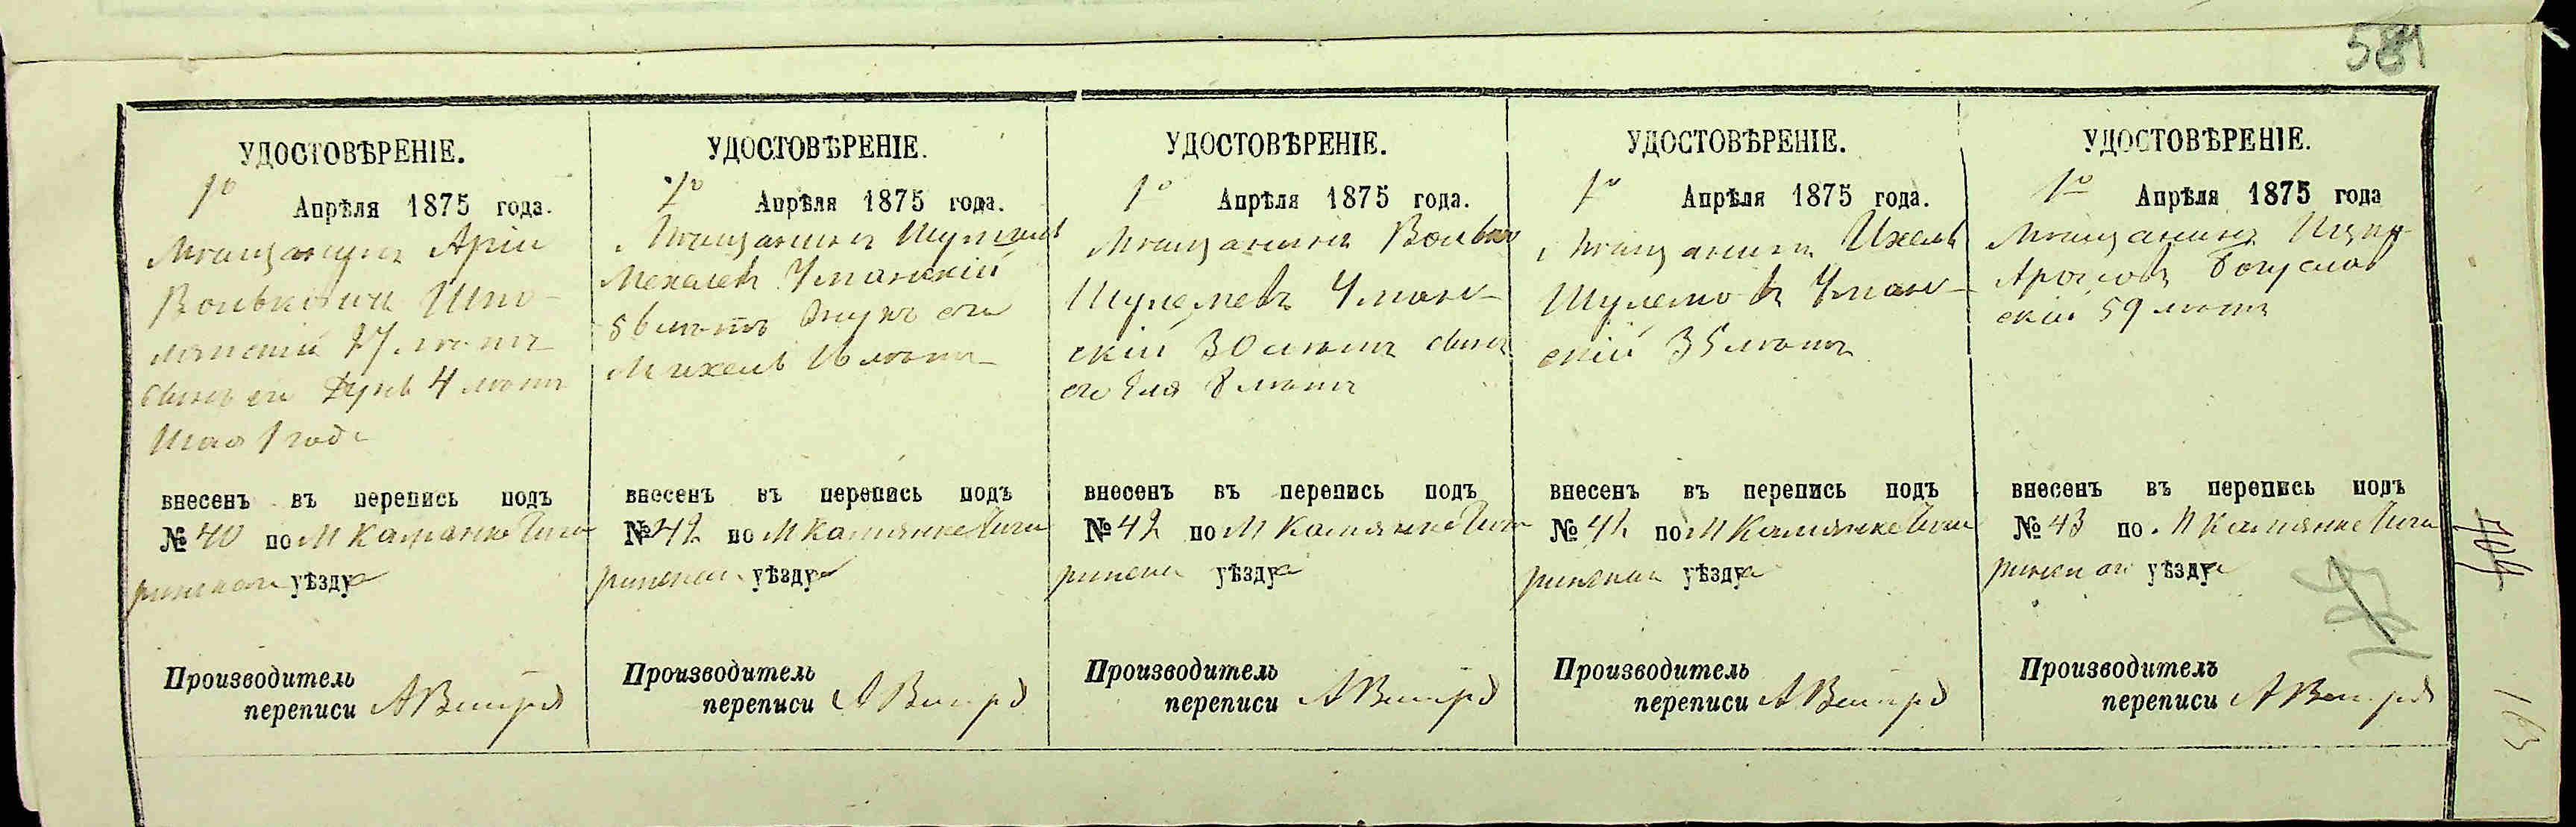 581
УДОСТОВѢРЕНІЕ.
1го Апрѣля 1875 года.
Мѣщанинъ Арій
Вольковичъ Шпо-
лянскій 27 лѣтъ
сынъ его Дунь 4 лѣтъ
1 года
внесенъ въ перепись подъ
№ 40 по М Камянке Чиги
ринскаго уѣзда
Производитель
переписи
УДОСТОВѢРЕНІЕ.
1го Апрѣля 1875 года.
Мѣщанинъ
Уманскій
56 лѣтъ внукъ его
Михель 16 лѣтъ
внесенъ въ перепись подъ
№ 42 по М Камянке Чиги
ринскаго уѣзда
Производитель
переписи
УДОСТОВѢРЕНІЕ.
1го Апрѣля 1875 года.
Мѣщанинъ Волько
Шулемовъ Уман-
скій 30 лѣтъ сынъ
его Еля 8 лѣтъ
внесенъ въ перепись подъ
№ 42 по М Камянке Чиги
ринска уѣзда
Производитель
переписи
УДОСТОВѢРЕНІЕ.
1го Апрѣля 1875 года.
Мѣщанинъ Ихель
Шулемовъ Уман-
скій 35 лѣтъ
внесенъ въ перепись подъ
№ 42 по М Камянке Чиги
ринска уѣзда
Производитель
переписи
УДОСТОВѢРЕНІЕ.
1го Апрѣля 1875 года
Мѣщанинъ Ицко
Богуслав
скій 59 лѣтъ
внесенъ въ перепись подъ
№ 43 по М Камянке Чиги
ринскаго уѣзда
Производитель
переписи
163